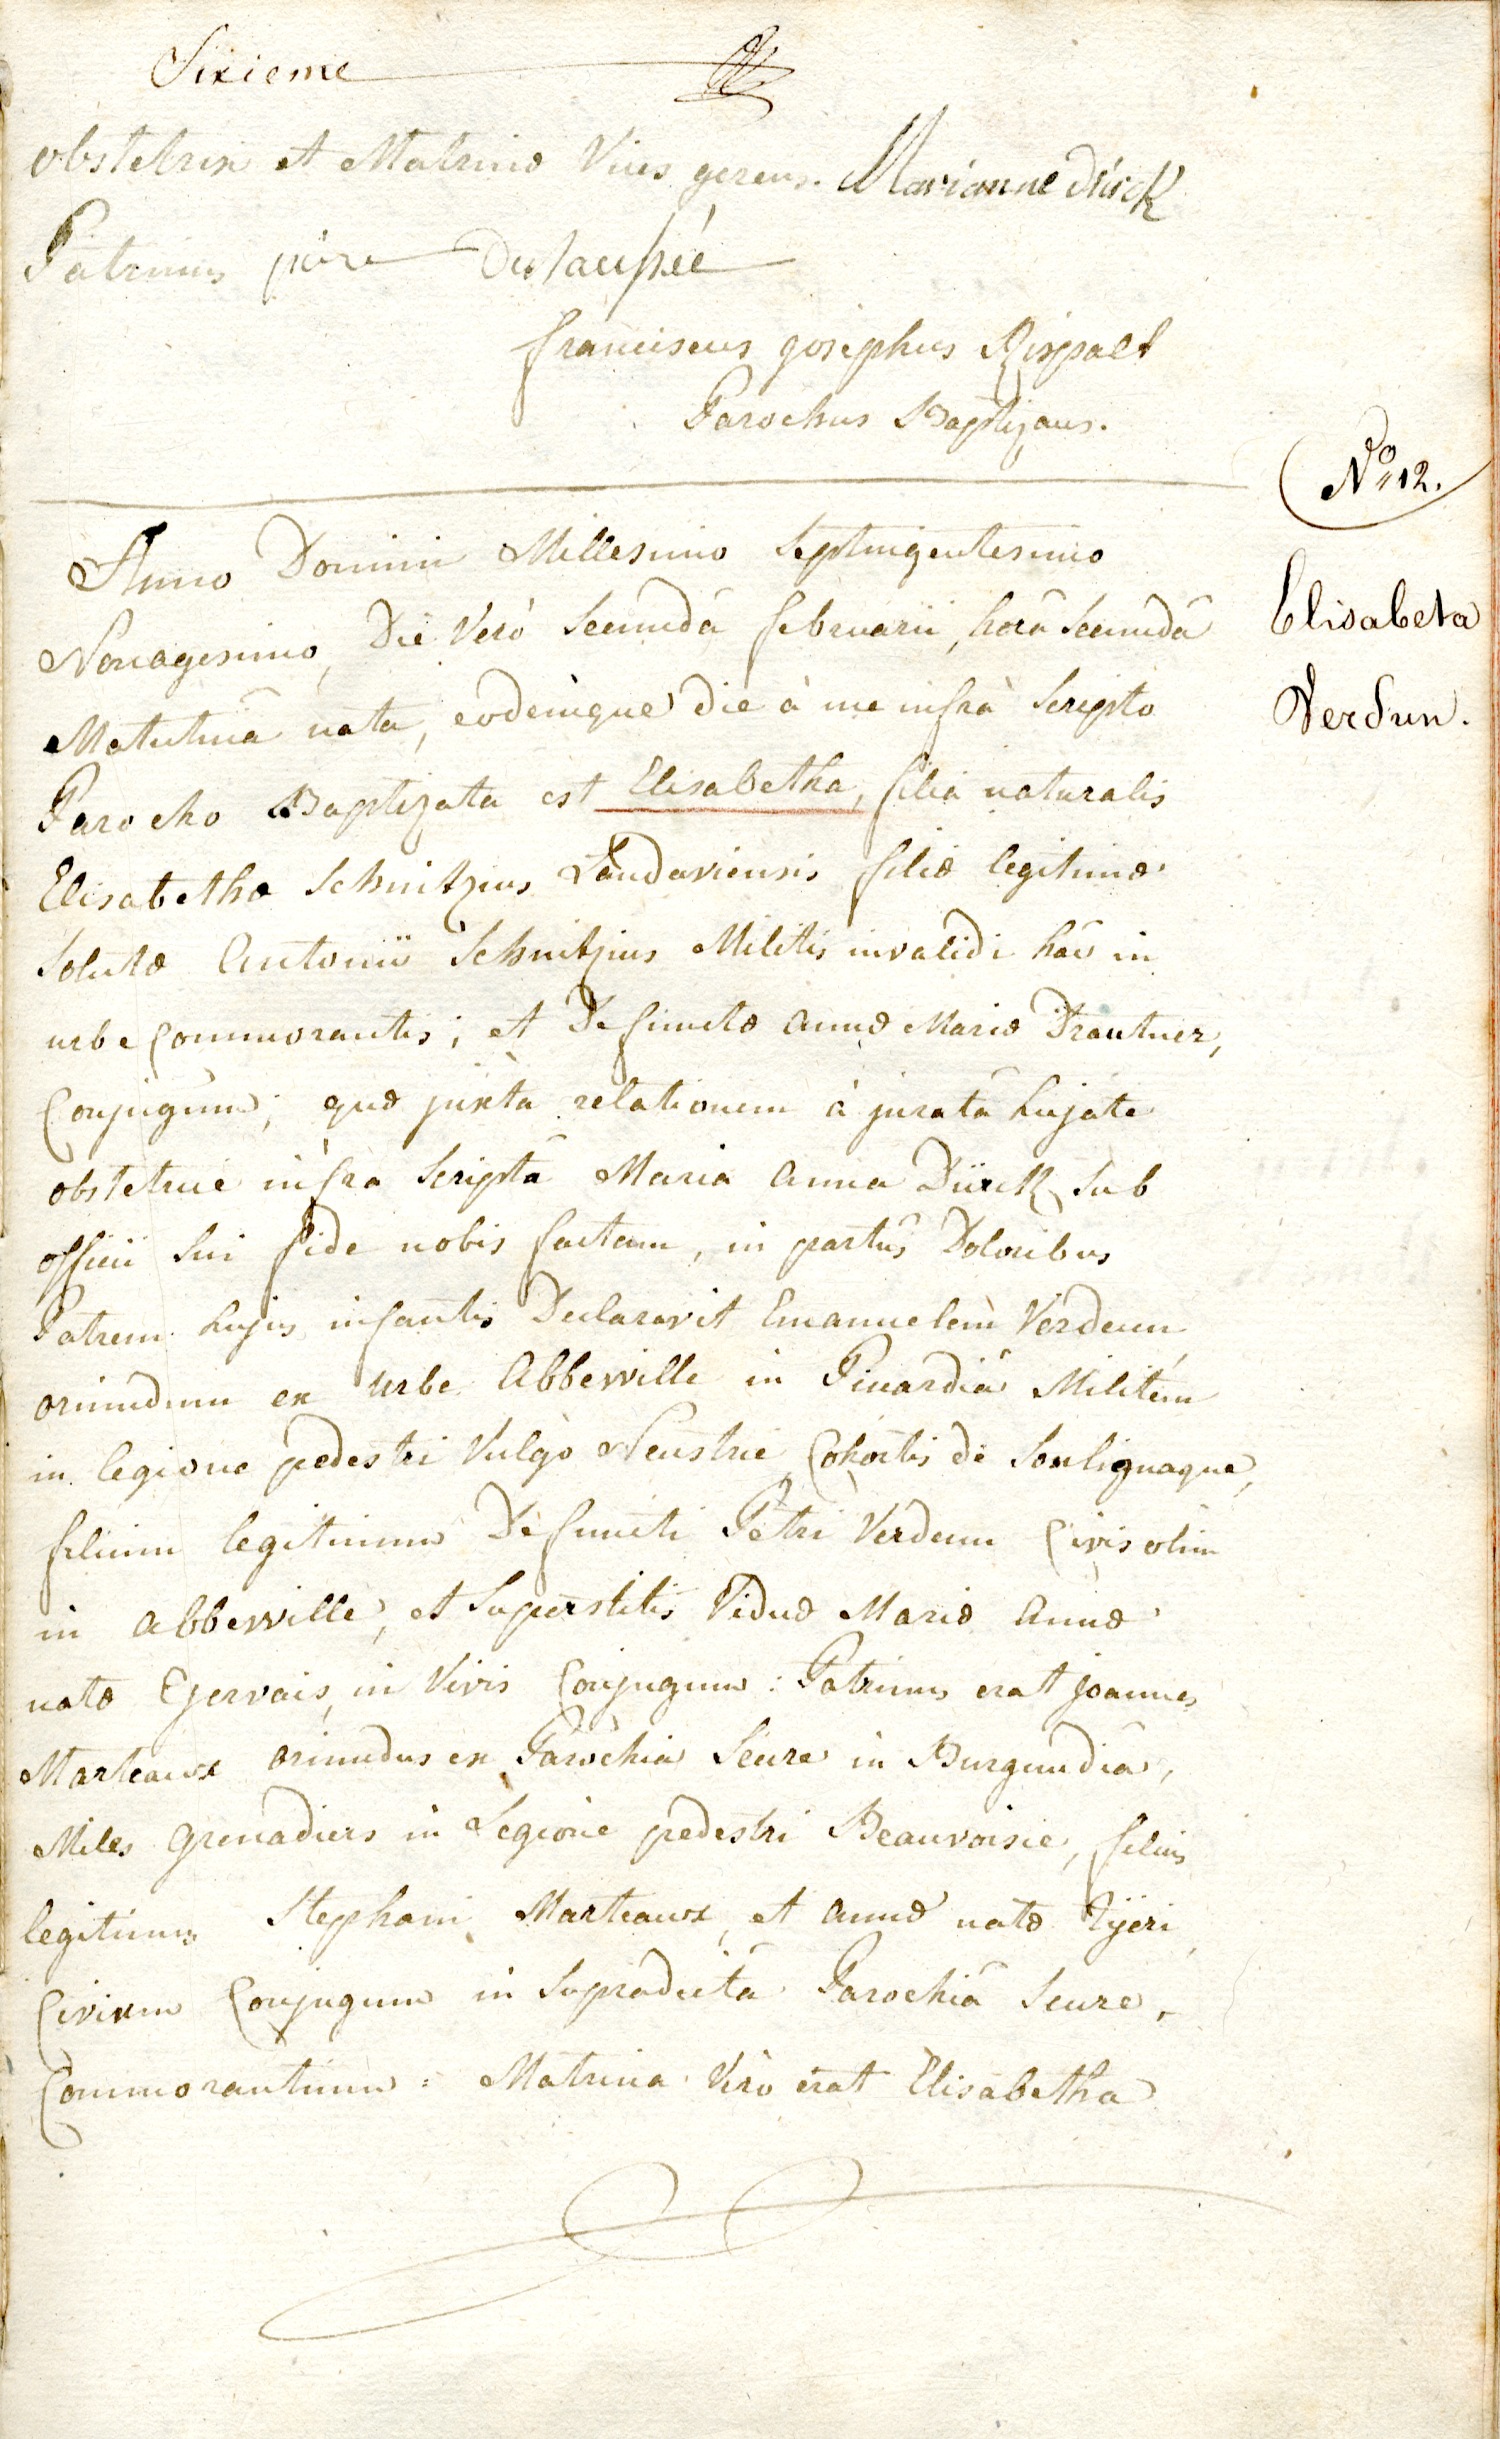 Sixieme
obstetrix et Matrinæ Vices gerens. Marianne dürck
Patrinus père
franciscus josephus Rispalt
Parochus Baptizans.
No 12.
Anno Domini Millesimo Septingentesimo
Nonagesimo, Die Verò Secundâ februarii, horâ Secundâ
Elisabeta
Matutinâ nata, eodémque die à me infrà Scripto
Verdun.
Parocho Baptizata est Elisabetha, filia naturalis
Elisabethæ Schnitzius Landaviensis filiæ legitimæ
Solutæ Antonii Schnitzius Militis invalidi hâc in
urbe Commorantis; et Defunctæ Annæ Mariæ Trautner,
Conjugum; quæ juxta relationem à juratâ hujate
obstetrice infra Scriptâ Maria Anna Dürck Sub
officii Sui fide nobis factam, in partûs Doloribus
Patrem hujus infantis Declaravit Emanuelem Verdun
oriundum ex Urbe Abbewille in Picardiâ Militem
in legione pedestri Vulgò Neustrie Cohortis de Sonlignaque,
filium legitimum Defuncti Petri Verdun Civis olim
in Abbewille, et Superstitis Viduæ Mariæ Annæ
natæ Egervais, in Vivis Conjugum: Patrinus erat joannes
Marteaux oriundus ex Parochia Seure in Burgundiâ,
Miles Grenadiers in Legione pedestri Beauvoisie, filius
legitimus Stephani Marteaux, et Annæ natæ Tijeri
Civium Conjugum in Supradictâ Parochiâ Seure,
Commorantium: Matrina Verò erat Elisabetha